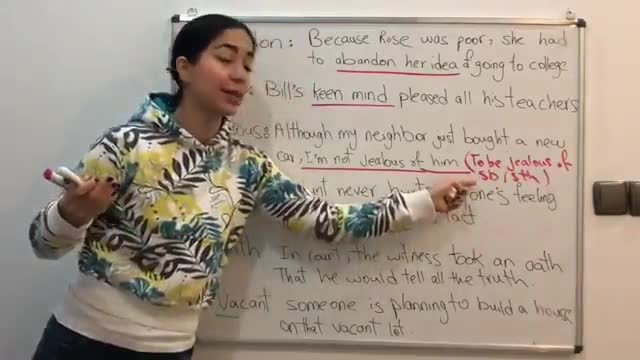 on: Because Rose was poor, she had
to abandon her idea of going to college
: Bill's keen mind pleased all his teachers
ous: Although my neighbor just bought a new
car, I'm not jealous of him (To be jealous of
sb, sth)
never one's feeling
In court, the witness took an oath
That he would tell all the truth.
Vacant someone is planning to build a house
on that vacant lot.